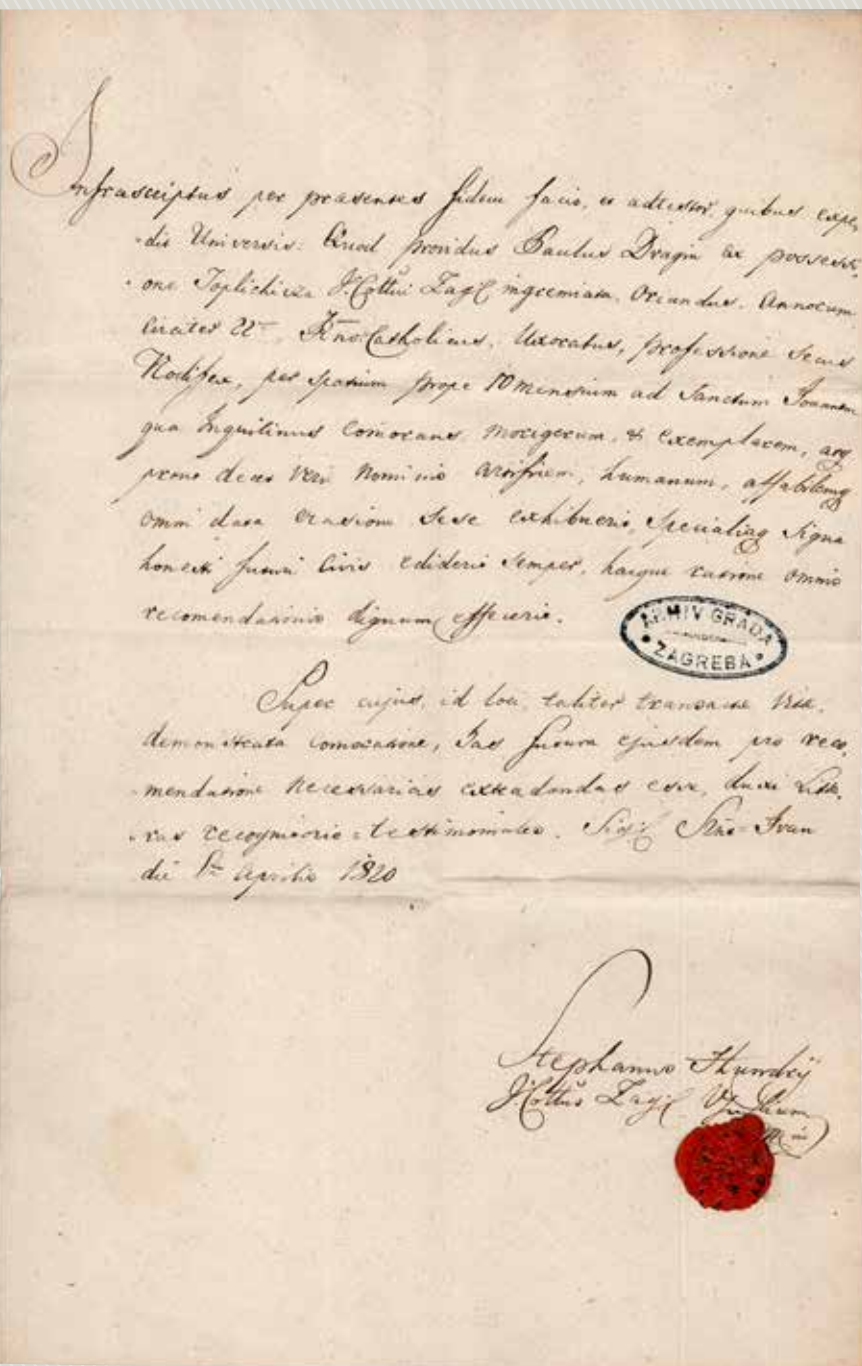 Infrascriptus per praesentes fidem facio, et adtestor, quibus expe,
-dit Universis: Quod providus Paulus Dragin ex possessi,
-one Toplichicza I. Cottui Zagr. ingremiata, Oriundus, Annorum
circiter 22 Rno Catholicus, Uxoratus, professione secus
Nodifex, per spatium prope 10 mensium ad Sanctum Joannem
qua Inquilinus Comorans, morigerum, et exemplarem,
prout decet Veri Nominis, humanum, affabilemq
omni data occasione sese exhibuerit, specialiaq signa
honesti futuri Civis ediderit semper, hacque ratione omnis
recomendationis dignum effecerit.
ARHIV GRADA
ZAGREBA
Super cujus, id loci, taliter transactae Vitae,
demonstrata Comoratione, has futura ejusdem pro reco,
-mendatione necessarias extradandas esse, duxi Litte,
-ras recognitorio-testimoniales. Sig. Stno-Ivan
die Aprilis 1820
Stephanus
I. Cottus Zagr.